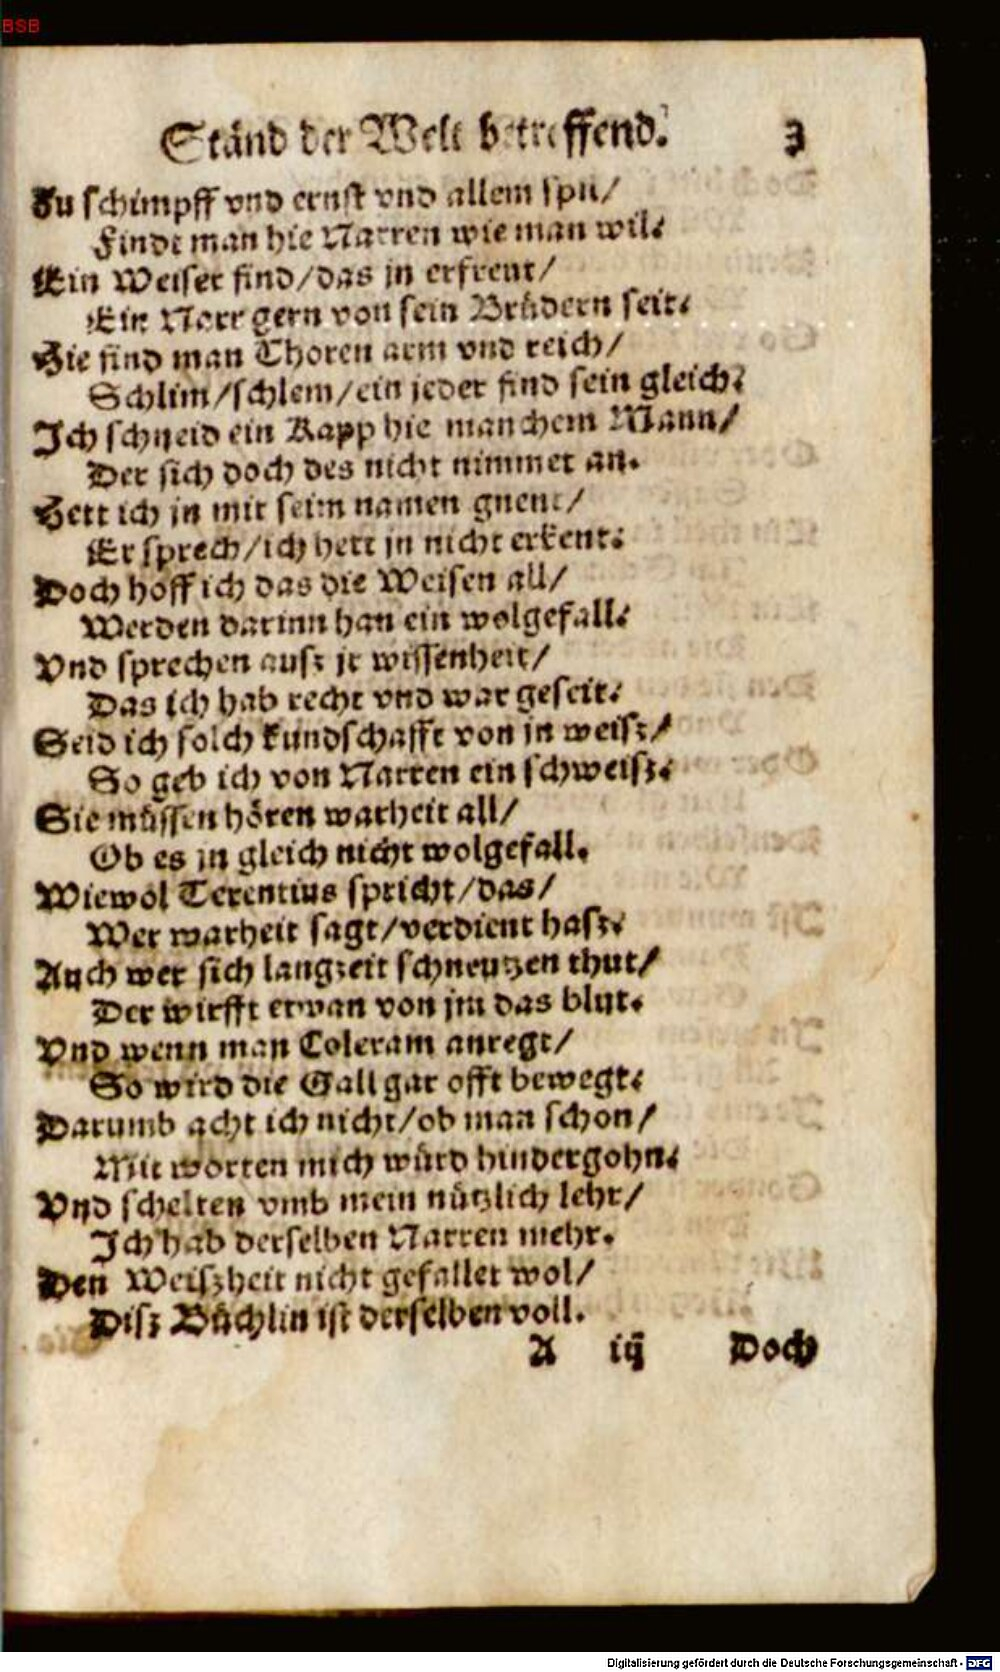 BSB
Ständ der Welt betreffend. 3
Zu schimpff vnd ernst vnd allem spil/
Findt man hie Narren wie man wil.
Ein Weiser find/das jn erfreut/
Ein Narr gern von sein Brüdern seit.
Hie find man Thoren arm vnd reich/
Schlim/schlem/ein jeder find sein gleich.
Ich schneid ein Kapp hie manchem Mann/
Der sich doch des nicht nimmet an.
Hett ich jn mit seim namen gnent/
Er sprech/ich hett jn nicht erkent.
Doch hoff ich das die Weisen all/
Werden darinn han ein wolgefall.
Vnd sprechen ausz jr wissenheit/
Das ich hab recht vnd war geseit.
Seid ich solch kundschafft von jn weisz/
So geb ich von Narren ein schweisz.
Sie müssen hören warheit all/
Ob es jn gleich nicht wolgefall.
Wiewol Terentius spricht/das/
Wer warheit sagt/verdient hasz.
Auch wer sich langzeit schneutzen thut/
Der wirfft etwan von jm das blut.
Vnd wenn man Coleram anregt/
So wird die Gall gar offt bewegt.
Darumb acht ich nicht/ob man schon/
Mit worten mich würd hindergohn.
Vnd schelten vmb mein nützlich lehr/
Ich hab derselben Narren mehr.
Den Weiszheit nicht gefallet wol/
Disz Büchlin ist derselben voll.
A iij Doch
Digitalisierung gefördert durch die Deutsche Forschungsgemeinschaft - DFG